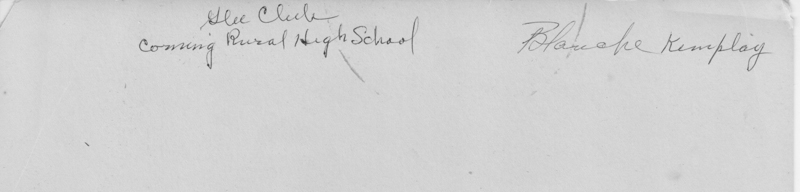 Glee Club
Corning Rural High School
Blanche Kemplay